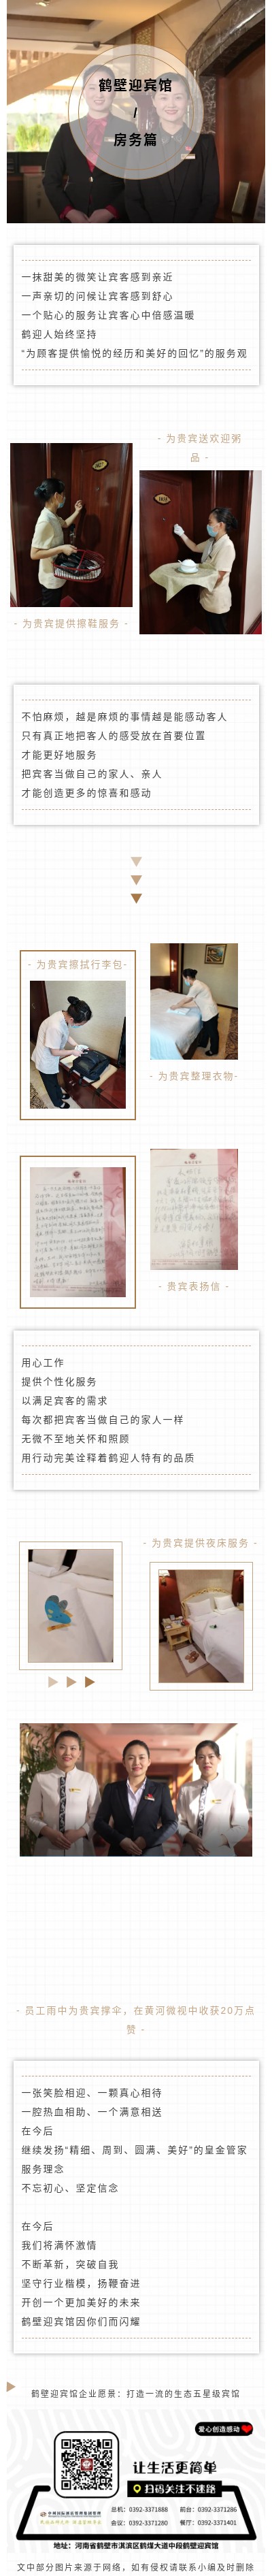 鹤壁迎宾馆
/
房务篇
一抹甜美的微笑让宾客感到亲近
一声亲切的问候让宾客感到舒心
一个贴心的服务让宾客心中倍感温暖
鹤迎人始终坚持
“为顾客提供愉悦的经历和美好的回忆”的服务观
- 为贵宾送欢迎粥
品 -
- 为贵宾提供擦鞋服务 -
不怕麻烦，越是麻烦的事情越是能感动客人
只有真正地把客人的感受放在首要位置
才能更好地服务
把宾客当做自己的家人、亲人
才能创造更多的惊喜和感动
- 为贵宾擦拭行李包-
- 为贵宾整理衣物-
- 贵宾表扬信 -
用心工作
提供个性化服务
以满足宾客的需求
每次都把宾客当做自己的家人一样
无微不至地关怀和照顾
用行动完美诠释着鹤迎人特有的品质
- 为贵宾提供夜床服务 -
- 员工雨中为贵宾撑伞，在黄河微视中收获20万点
赞 -
一张笑脸相迎、一颗真心相待
一腔热血相助、一个满意相送
在今后
继续发扬“精细、周到、圆满、美好”的皇金管家
服务理念
不忘初心、坚定信念
在今后
我们将满怀激情
不断革新，突破自我
坚守行业楷模，扬鞭奋进
开创一个更加美好的未来
鹤壁迎宾馆因你们而闪耀
鹤壁迎宾馆企业愿景：打造一流的生态五星级宾馆
爱心创造感动
让生活更简单
扫码关注不迷路
总机：0392-3371888 前台：0392-3371286
会议：0392-3371280 餐厅：0392-3371401
地址：河南省鹤壁市淇滨区鹤煤大道中段鹤壁迎宾馆
文中部分图片来源于网络，如有侵权请联系小编及时删除